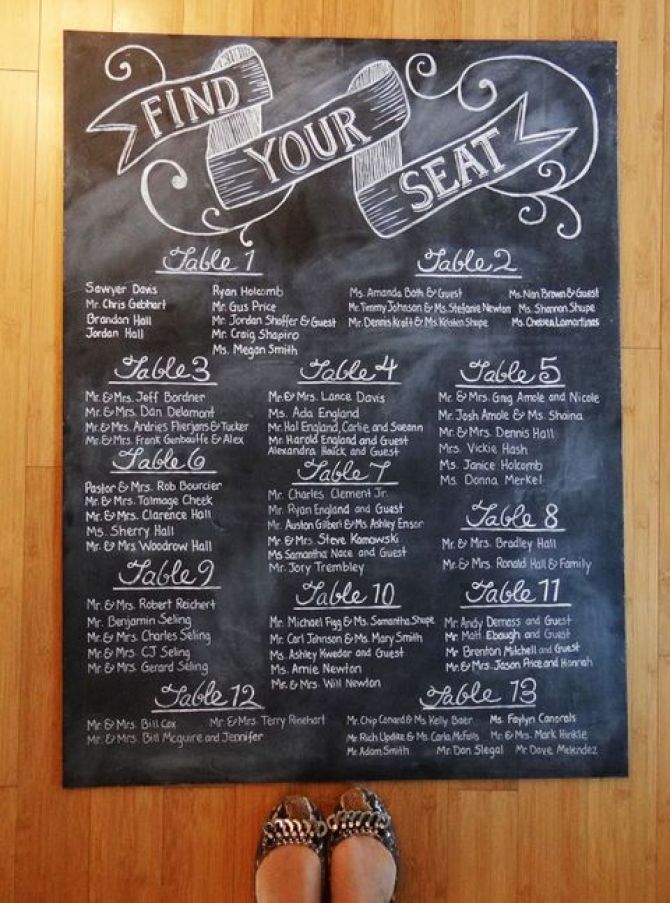 FIND
YOUR
SEAT
Table 1
Sawyer Davis
Mr. Chris Gebhart
Brandan Hall
Jordan Hall
Ryan Holcomb
Mr. Gus Price
Mr. Jordan Shaffer & Guest
Mr. Craig Shapiro
Ms. Megan Smith
Table 2
Ms. Amanda Both & Guest
Mr. Timmy Johnson & Ms. Stefanie Newton
Mr. Dennis Kraft & Ms. Kristen Shupe
Ms. Nan Brown & Guest
Ms. Shannon Shupe
Ms. Chelsea Lamartinas
Table 3
Mr. & Mrs. Jeff Bordner
Mr. & Mrs. Dan Delamont
Mr. & Mrs. Andries Flierjans & Tucker
Mr. & Mrs. Frank & Alex
Table 4
Mr. & Mrs. Lance Davis
Ms. Ada England
Mr. Hal England, Carlie and Sueann
Mr. Harold England and Guest
Alexandra Hauck and Guest
Table 5
Mr. & Mrs. Greg Amole and Nicole
Mr. Josh Amole & Ms. Shaina
Mr. & Mrs. Dennis Hall
Mrs. Vickie Hash
Ms. Janice Holcomb
Ms. Donna Merkel
Table 6
Pastor & Mrs. Rob Bourcier
Mr. & Mrs. Talmage Cheek
Mr. & Mrs. Clarence Hall
Ms. Sherry Hall
Mr. & Mrs. Woodrow Hall
Table 7
Mr. Charles Clement Jr.
Mr. Ryan England and Guest
Mr. Austin Gilbert & Ms. Ashley Ensor
Mr. & Mrs. Steve Kamowski
Ms Samantha Nace and Guest
Mr. Jory Trembley
Table 8
Mr. & Mrs. Bradley Hall
Mr. & Mrs. Ronald Hall & Family
Table 9
Mr. & Mrs. Robert Reichert
Mr. Benjamin Seling
Mr. & Mrs. Charles Seling
Mr. & Mrs. CJ Seling
Mr. & Mrs. Gerard Seling
Table 10
Mr. Michael Figg & Ms. Samantha Shupe
Mr. Carl Johnson & Ms. Mary Smith
Ms. Ashley Kwedar and Guest
Ms. Amie Newton
Mr. & Mrs. Will Newton
Table 11
Mr. Andy Demess and Guest
Mr. Matt Ebaugh and Guest
Mr Brenton Mitchell and Guest
Mr. & Mrs. Jason Price and Hannah
Table 12
Mr. & Mrs. Bill Cox
Mr. & Mrs. Terry Rinehart
Mr. & Mrs. Bill Mcguire and Jennifer
Table 13
Mr. Chip Conard & Ms Kelly Baer Ms. Faylyn
Mr. Rich Updike & Ms. Carla McFalls Mr. & Mrs. Mark Hinkle
Mr. Adam Smith Mr. Dan Slegal Mr. Dave Melendez